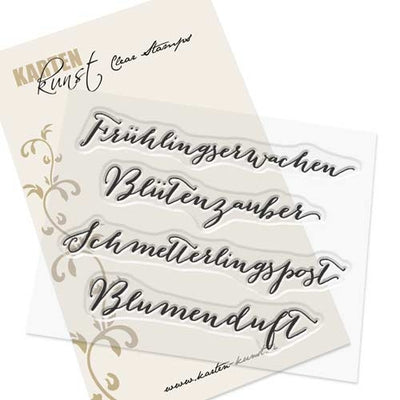 KARTEN
Kunst Clear Stamps
Frühlingserwachen
Blütenzauber
Schmetterlingspost
Blumenduft
www.karten-kunst.